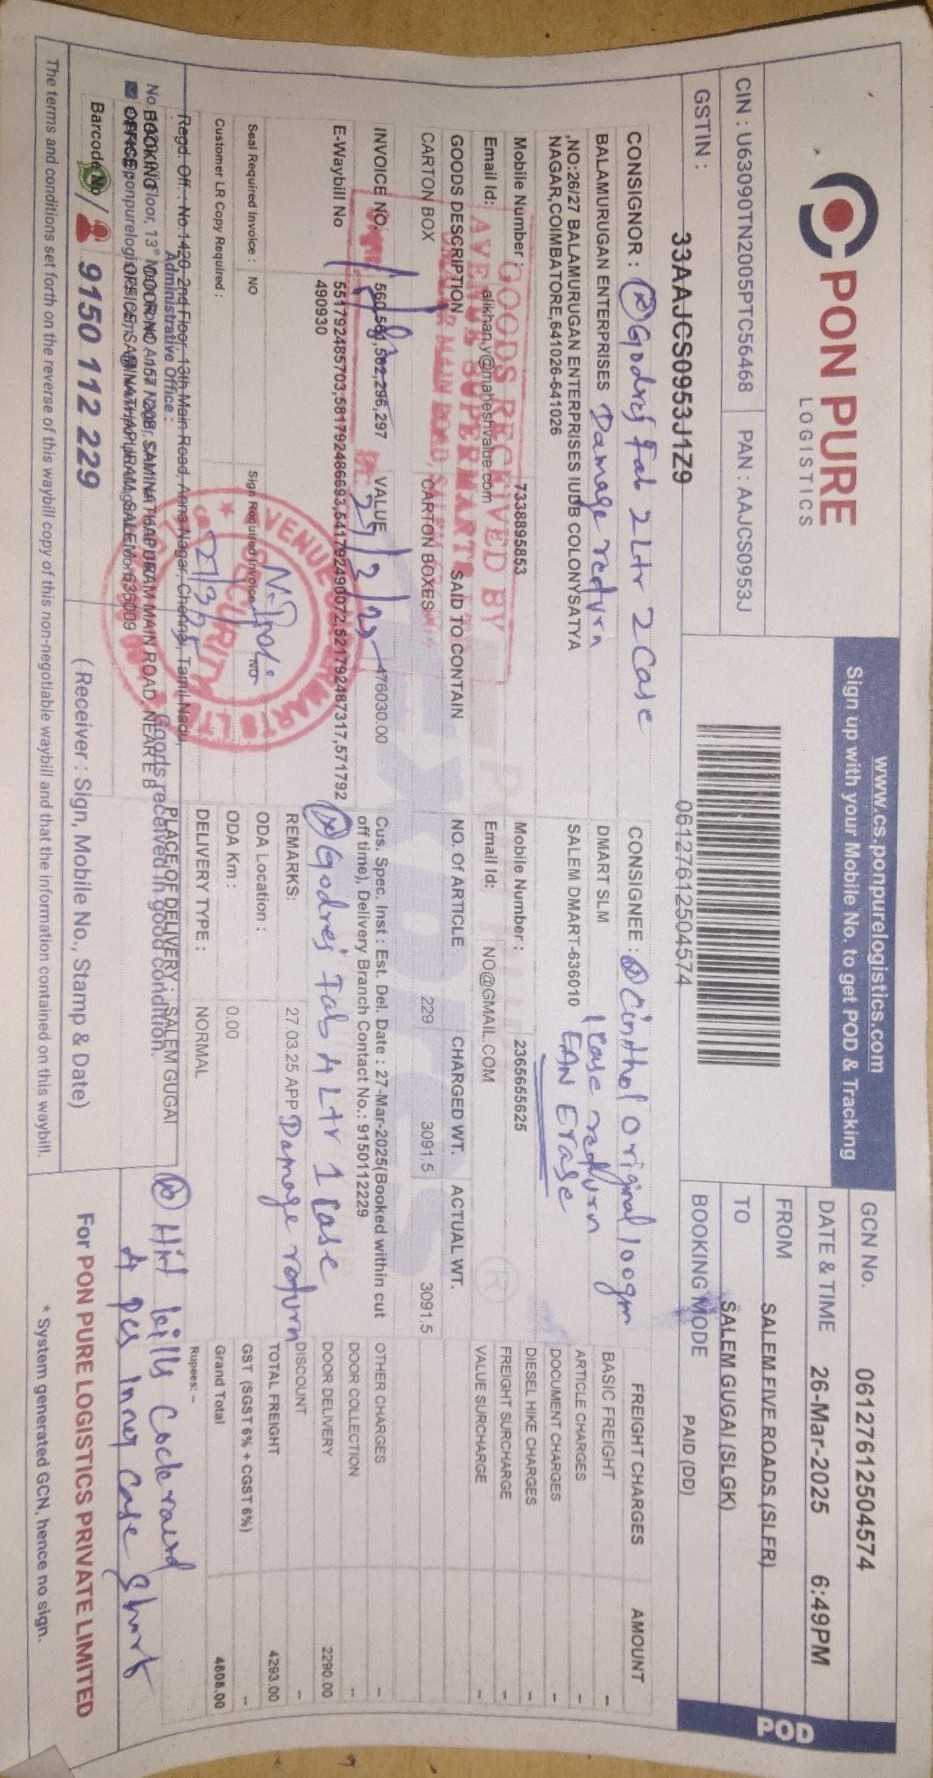 PON PURE
LOGISTICS
www.cs.ponpurelogistics.com
Sign up with your Mobile No. to get POD & Tracking
POD
CIN : U63090TN2005PTC56468 PAN : AAJCS0953J
GSTIN : 33AAJCS0953J1Z9
06127612504574
GCN No. 06127612504574
DATE & TIME 26-Mar-2025 6:49PM
FROM SALEM FIVE ROADS (SLFR)
TO SALEM GUGAI (SLGK)
BOOKING MODE PAID (DD)
CONSIGNOR : Godrej Fab 2Ltr 2 Case
BALAMURUGAN ENTERPRISES Damage return
,NO:26/27 BALAMURUGAN ENTERPRISES IUDB COLONYSATYA
NAGAR,COIMBATORE,641026-641026
Mobile Number : 7338895853
Email Id: alikhan.y@maheshvalue.com
CONSIGNEE : Cinthol Original 100gm
DMART SLM 1 Case return
SALEM DMART-636010 EAN Erase
Mobile Number : 2365655625
Email Id: NO@GMAIL.COM
GOODS RECEIVED BY
AVENUE SUPERMARTS
GOODS DESCRIPTION SAID TO CONTAIN NO. OF ARTICLE CHARGED WT. ACTUAL WT.
CARTON BOX CARTON BOXES 229 3091.5 3091.5
INVOICE NO: 560,561,562,296,297 VALUE 476030.00
E-Waybill No 551792485703,581792486693,541792490072,521792487317,571792
490930
Cus. Spec. Inst : Est. Del. Date : 27-Mar-2025(Booked within cut
off time), Delivery Branch Contact No.: 9150112229
Godrej Fab 4 Ltr 1 Case
REMARKS: 27.03.25 APP Damage return
ODA Location :
ODA Km : 0.00
DELIVERY TYPE : NORMAL
PLACE OF DELIVERY : SALEM GUGAI
Goods received in good condition.
Seal Required Invoice : NO Sign Required Invoice NO
Customer LR Copy Required :
FREIGHT CHARGES AMOUNT
BASIC FREIGHT --
ARTICLE CHARGES --
DOCUMENT CHARGES --
DIESEL HIKE CHARGES --
FREIGHT SURCHARGE --
VALUE SURCHARGE --
OTHER CHARGES --
DOOR COLLECTION --
DOOR DELIVERY 2290.00
DISCOUNT --
TOTAL FREIGHT 4293.00
GST (SGST 6% + CGST 6%) --
Grand Total 4808.00
Rupees: --
Hit kills Cockroach
4 pcs Inner Case Short
Regd. Off. : No.1420, 2nd Floor, 13th Main Road, Anna Nagar, Chennai, Tamil Nadu,
Administrative Office :
BOOKING
OFFICE
Barcode No / 9150 112 229
(Receiver : Sign, Mobile No., Stamp & Date)
For PON PURE LOGISTICS PRIVATE LIMITED
The terms and conditions set forth on the reverse of this waybill copy of this non-negotiable waybill and that the information contained on this waybill.
* System generated GCN, hence no sign.